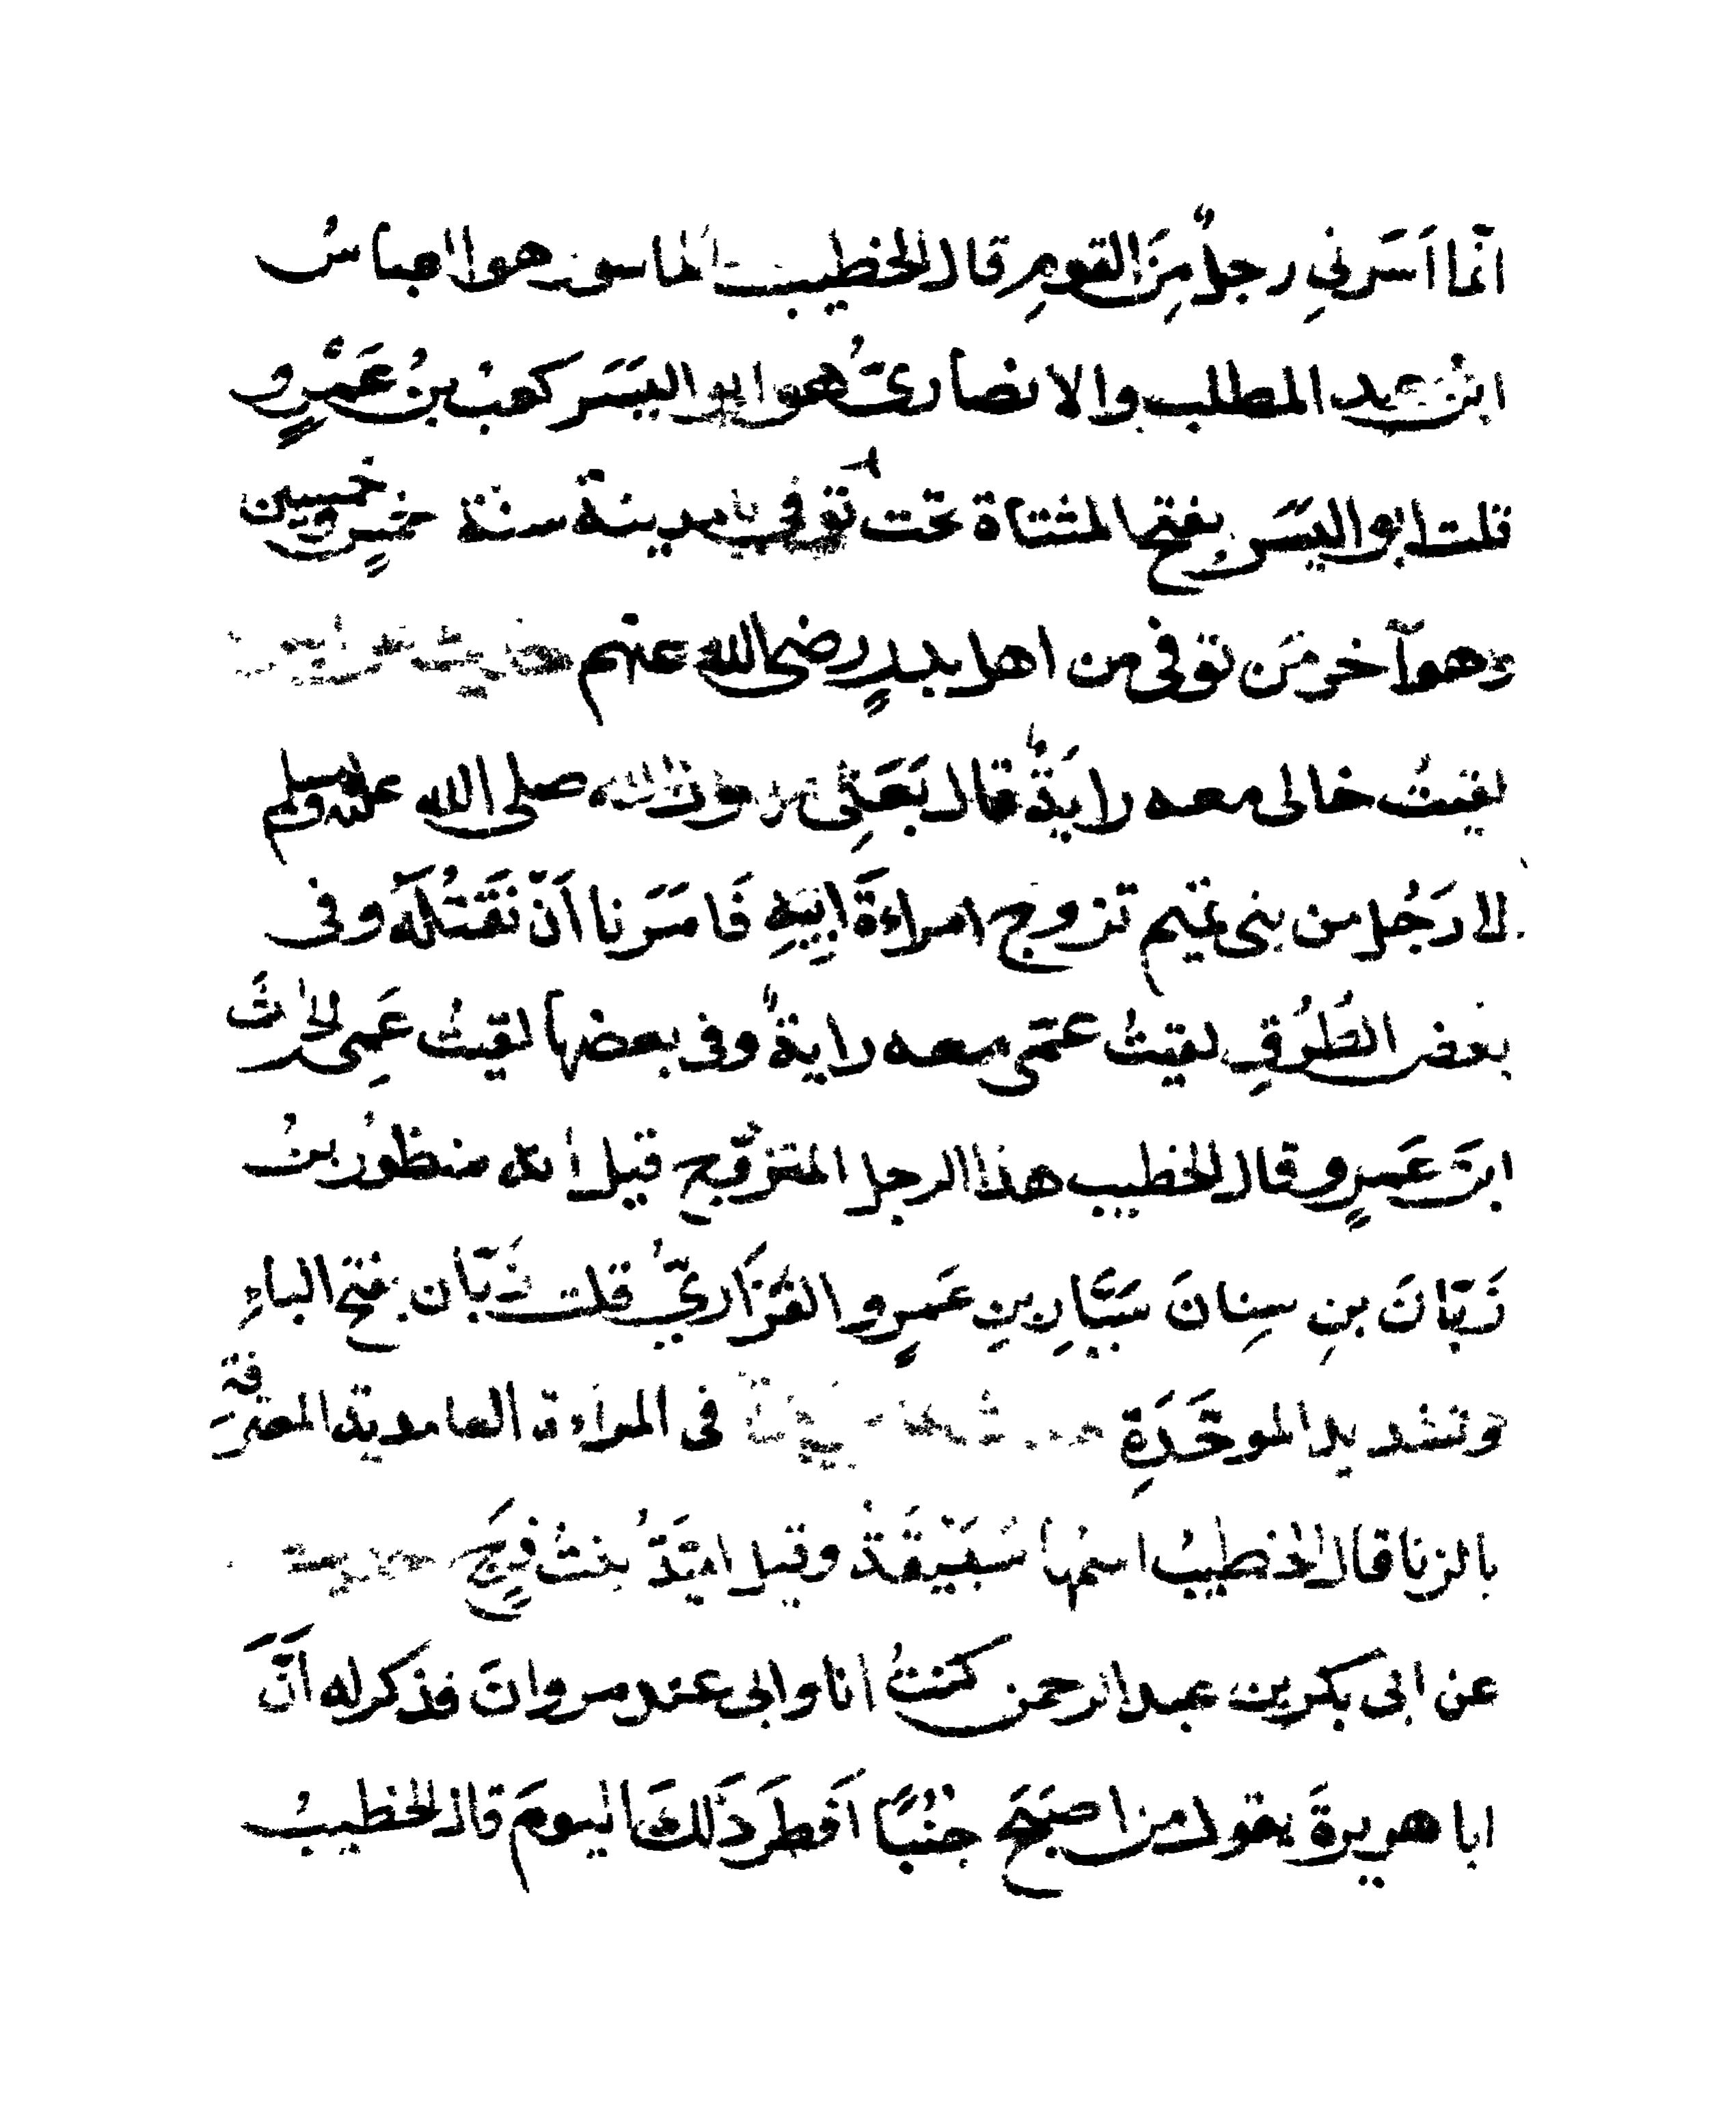 انّما اَسَرني رجلٌ مِنَ القومِ قال الخطيب الماسور هو العباسُ
ابنُ عبد المطلب والانصاريّ هو ابو اليَسَر كعبُ بنُ عَمْرٍو
قلت ابو اليَسَر بفتح المثناة تحت توفي بالمدينة سنة خمسٍ وخمسين
وهو آخر مَن توفي من اهل بدرٍ رضي الله عنهم حديث
لقيتُ خالي معه رايَةٌ قال بَعَثَنِي رسول الله صلى الله عليه وسلم
لا رَجُل من بني تميم تزوج امراءةَ ابِيهِ فَامَرَنا اَنْ نَقْتُلَهُ وفي
بعض الطُرُقِ لقيتُ عمّي معه رايةٌ وفي بعضها لقيتُ عَمِي الحٰرثَ
ابنَ عَمرٍو قال الخطيب هذا الرجل المتزوّج قيل انه منظورُ بنُ
زَبّانَ بنِ سِنانَ سَيَّارِ بنِ عَمرٍو الفَزَاريّ قلت زَبّان بفتح الباءِ
وتشديد الموحَّدَةِ في المراءة الغامدية المعترفةِ
بالزنا قال الخطيبُ اسمُها سُبَيْعَةُ وقيل ابَيَّةُ بنتُ فَرَجٍ حديث
عن ابي بكر بن عبد الرحمن كنتُ انا وابي عند مروانَ فذكر له اَنَّ
ابا هريرةَ يقول من اصبَحَ جنُبًا اَفطَرَ ذَلكَ اليومَ قال الخطيبُ